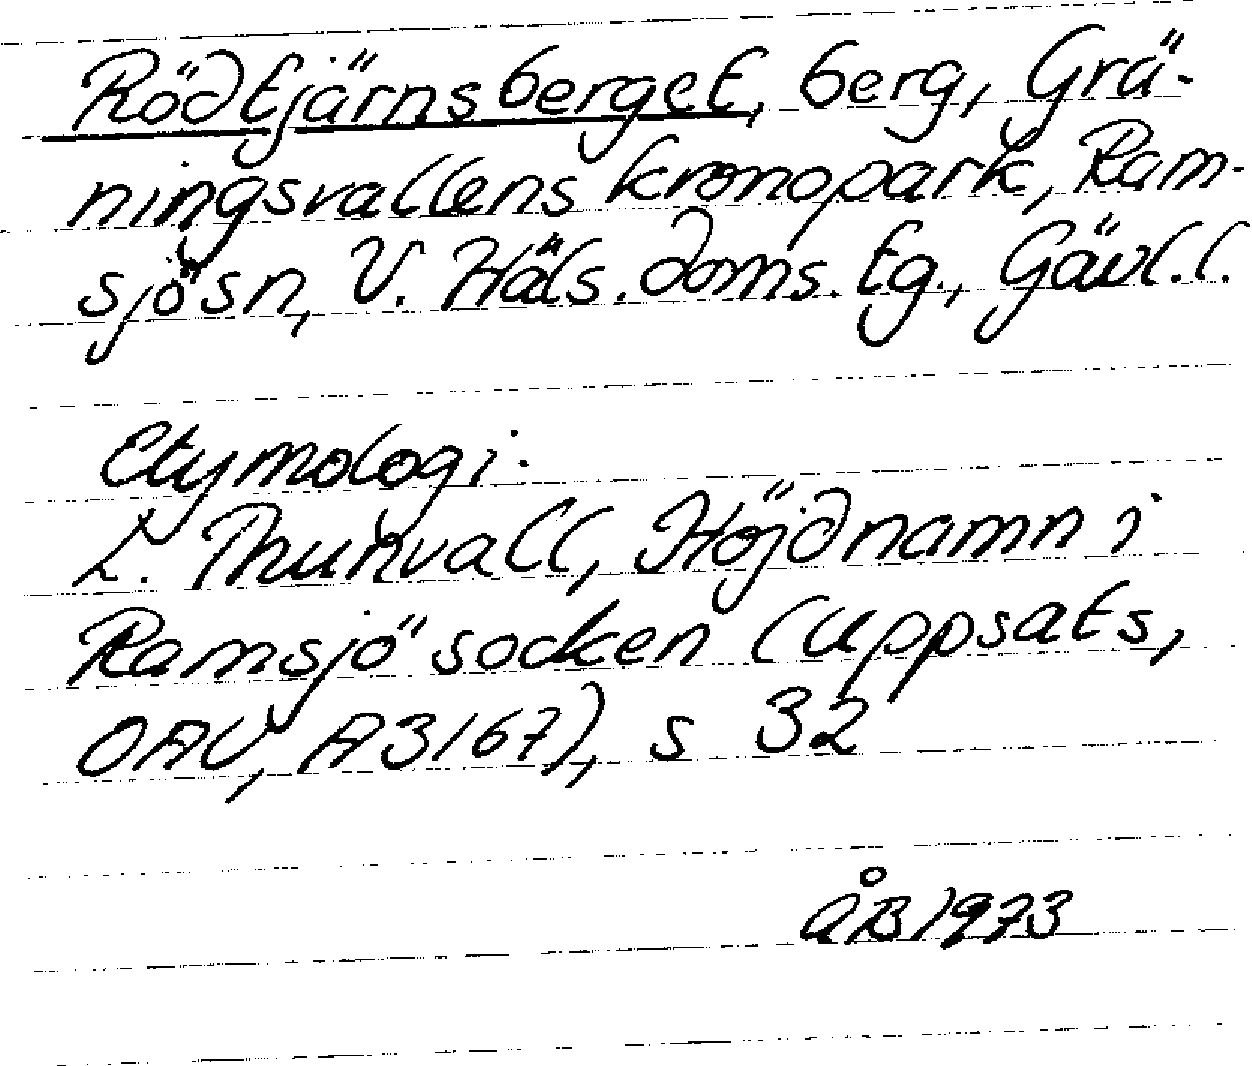 Rödtjärnsberget, berg, Grä-
ningsvallens kronopark, Ram-
sjösn, V. Häls. doms. tg., Gävl.l.
Etymologi:
L. Thunvall, Höjdnamn i
Ramsjö socken (uppsats,
OAU, A3167), s 32
ÅB 1973